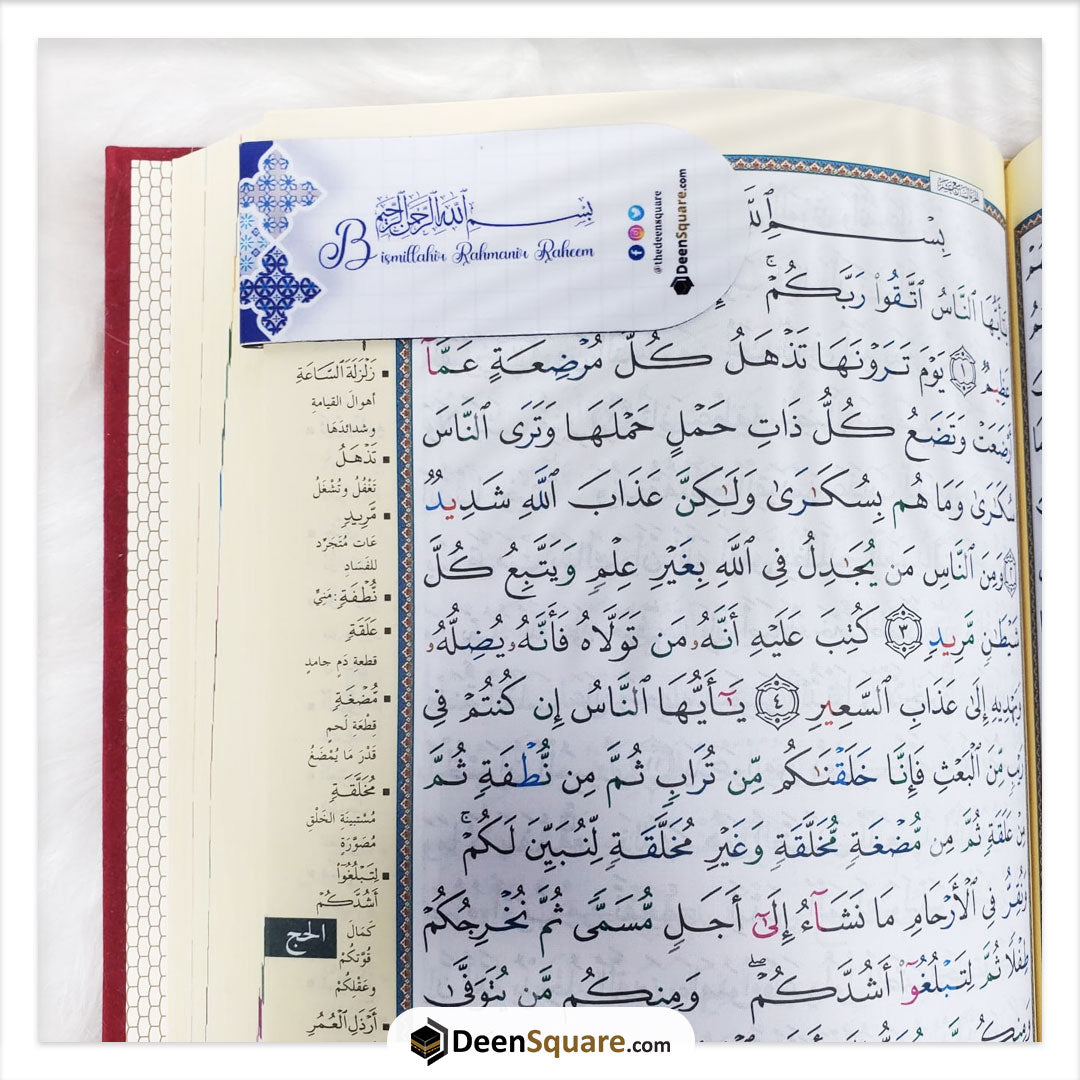 بِسْمِ ٱللَّهِ ٱلرَّحْمَٰنِ ٱلرَّحِيمِ
Bismillahir Rahmanir Raheem
@thedeensquare
DeenSquare.com
بِسْمِ ٱللَّهِ
يَٰٓأَيُّهَا ٱلنَّاسُ ٱتَّقُوا۟ رَبَّكُمْ ۚ
عَظِيمٌ ١ يَوْمَ تَرَوْنَهَا تَذْهَلُ كُلُّ مُرْضِعَةٍ عَمَّآ
أَرْضَعَتْ وَتَضَعُ كُلُّ ذَاتِ حَمْلٍ حَمْلَهَا وَتَرَى ٱلنَّاسَ
سُكَٰرَىٰ وَمَا هُم بِسُكَٰرَىٰ وَلَٰكِنَّ عَذَابَ ٱللَّهِ شَدِيدٌ
٢ وَمِنَ ٱلنَّاسِ مَن يُجَٰدِلُ فِى ٱللَّهِ بِغَيْرِ عِلْمٍ وَيَتَّبِعُ كُلَّ
شَيْطَٰنٍ مَّرِيدٍ ٣ كُتِبَ عَلَيْهِ أَنَّهُۥ مَن تَوَلَّاهُ فَأَنَّهُۥ يُضِلُّهُۥ
وَيَهْدِيهِ إِلَىٰ عَذَابِ ٱلسَّعِيرِ ٤ يَٰٓأَيُّهَا ٱلنَّاسُ إِن كُنتُمْ فِى
رَيْبٍ مِّنَ ٱلْبَعْثِ فَإِنَّا خَلَقْنَٰكُم مِّن تُرَابٍ ثُمَّ مِن نُّطْفَةٍ ثُمَّ
مِنْ عَلَقَةٍ ثُمَّ مِن مُّضْغَةٍ مُّخَلَّقَةٍ وَغَيْرِ مُخَلَّقَةٍ لِّنُبَيِّنَ لَكُمْ ۚ
وَنُقِرُّ فِى ٱلْأَرْحَامِ مَا نَشَآءُ إِلَىٰٓ أَجَلٍ مُّسَمًّى ثُمَّ نُخْرِجُكُمْ
طِفْلًا ثُمَّ لِتَبْلُغُوٓا۟ أَشُدَّكُمْ ۖ وَمِنكُم مَّن يُتَوَفَّىٰ
زَلْزَلَةَ ٱلسَّاعَةِ
أهوالَ القيامةِ
وشدائدَهَا
تَذْهَلُ
تَغْفُلُ وتُشْغَلُ
مَّرِيدٍ
عَاتٍ مُتَجَرِّدٍ
للفَسَادِ
نُّطْفَةٍ: مَنِيٍّ
عَلَقَةٍ
قطعةِ دَمٍ جامدٍ
مُّضْغَةٍ
قِطْعَةِ لَحمٍ
قَدْرَ مَا يُمْضَغُ
مُّخَلَّقَةٍ
مُسْتَبِينَةِ الخَلْقِ
مُصَوَّرَةٍ
لِتَبْلُغُوٓا۟
أَشُدَّكُمْ
كَمَالَ
قُوَّتِكُمْ
وعَقْلِكُمْ
أَرْذَلِ ٱلْعُمُرِ
الحج
DeenSquare.com